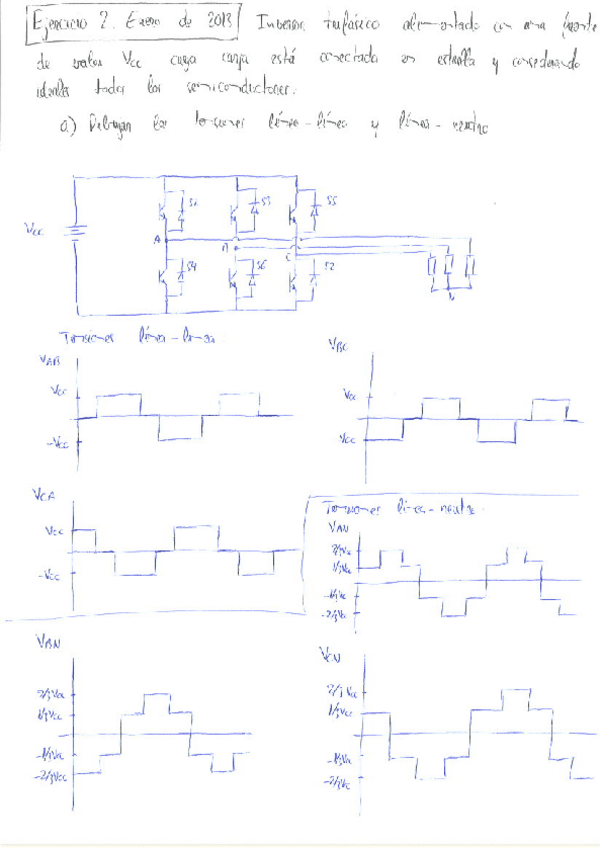 Ejercicio 2. Enero de 2013 Inversor trifásico alimentado con una fuente
de valor Vcc cuya carga está conectada en estrella y considerando
ideales todos los semiconductores.
a) Dibujan las tensiones línea-línea y línea-neutro
S1 S3 S5
Vcc
A B C
S4 S6 S2
N
Tensiones línea-línea
VAB
Vcc
-Vcc
VBC
Vcc
-Vcc
VCA
Vcc
-Vcc
Tensiones línea-neutro
VAN
2/3Vcc
1/3Vcc
-1/3Vcc
-2/3Vcc
VBN
2/3Vcc
1/3Vcc
-1/3Vcc
-2/3Vcc
VCN
2/3Vcc
1/3Vcc
-1/3Vcc
-2/3Vcc